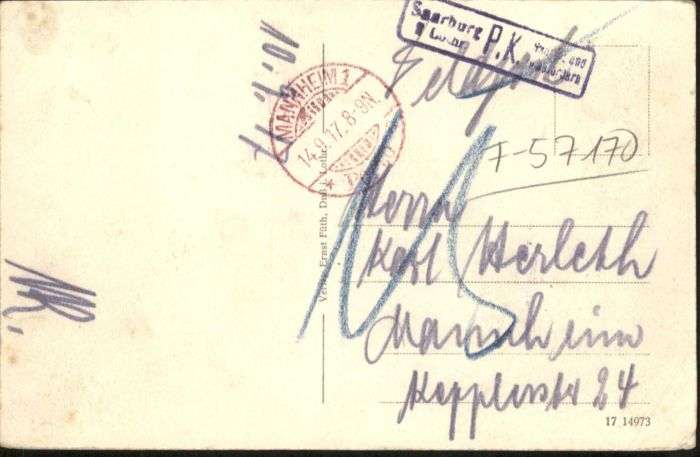 Saarburg P.K.
i Lothr
10.9.17
MANNHEIM 1
14.9.17. 8-9N.
Feldpost
F-57170
15
Herrn
Karl Herleth
Mannheim
Kepplerstr 24
Verlag Ernst Füth,
17 14973